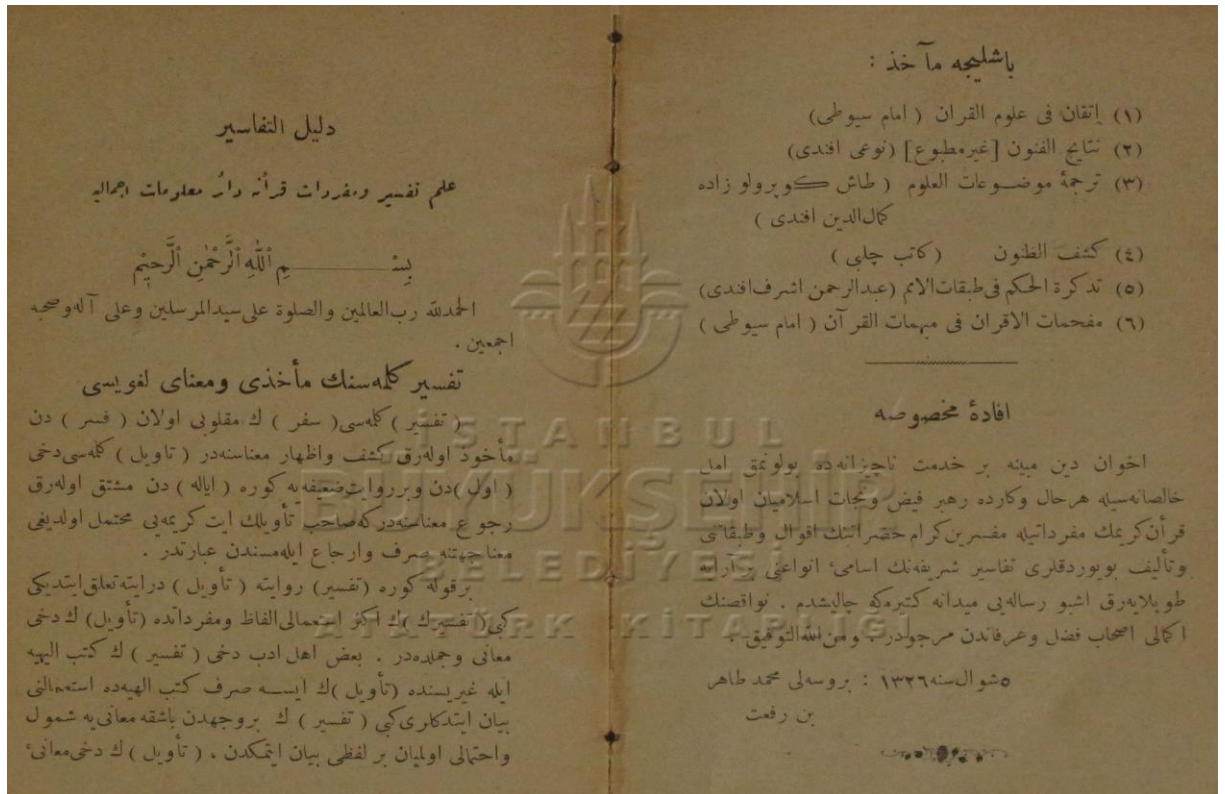 باشليجه مآخذ :
(١) إتقان فى علوم القران ( امام سيوطى)
(٢) نتايج الفنون [غيرمطبوع] (نوعى افندى)
(٣) ترجمۀ موضـوعات العلوم ( طاش كوپرولو زاده
كمال‌الدين افندى )
(٤) كشف الظنون (كاتب چلبى )
(٥) تذكرة الحكم فى طبقات‌الامم (عبدالرحمن اشرف‌افندى)
(٦) مفحمات الاقران فى مبهمات القرآن ( امام سيوطى )
افادۀ مخصوصه
اخوان دين مبينه بر خدمت ناچيزانه‌ده بولونمق امل
خالصانه‌سيله هرحال وكارده رهبر فيض ونجات اسلاميان اولان
قرآن كريمك مفرداتيله مفسرين كرام حضراتنك اقوال وطبقاتنى
وتأليف بويوردقلرى تفاسير شريفه‌نك اسامئ انواعنى بر آرايه
طوپلايه‌رق اشبو رساله‌يى ميدانه كتيرمكه چاليشدم . نواقصنك
اكمالى اصحاب فضل وعرفاندن مرجودر . ومن الله التوفيق .
٥ شوال سنه ١٣٢٦ : بروسه‌لى محمد طاهر
بن رفعت
دليل التفاسير
علم تفسير ومفردات قرآنه دائر معلومات اجماليه
بِسْـــــمِ ٱللّٰهِ ٱلرَّحْمٰنِ ٱلرَّحِيْمِ
الحمدلله رب العالمين والصلوة على سيدالمرسلين وعلى آله وصحبه
اجمعين .
تفسير كلمه‌سنك مأخذى ومعناى لغويسى
( تفسير ) كلمه‌سى ( سفر ) ك مقلوبى اولان ( فسر ) دن
مأخوذ اوله‌رق كشف واظهار معناسنه‌در ( تاويل ) كلمه‌سى دخى
( اول )دن وبرروايت ضعيفه‌يه كوره ( اياله ) دن مشتق اوله‌رق
رجوع معناسنه‌دركه صاحب تأويلك ايت كريمه‌يى محتمل اولديغى
معنا جهتنه صرف وارجاع ايله‌مسندن عبارتدر .
برقوله كوره (تفسير) روايته ( تأويل ) درايته تعلق ايتديكى
كبى ( تفسيرك )ك اكثر استعمالى الفاظ ومفرداتده (تأويل) ك دخى
معانى وجملده‌در . بعض اهل ادب دخى ( تفسير ) ك كتب الهيه
ايله غيريسنده (تأويل )ك ايسـه صرف كتب الهيه‌ده استعمالنى
بيان ايتدكلرى كبى ( تفسير ) ك بروجهدن باشقه معانى‌يه شمول
واحتمالى اولميان بر لفظى بيان ايتمكدن . ( تأويل ) ك دخى معانئ
İSTANBUL
BÜYÜKŞEHİR
BELEDİYESİ
ATATÜRK KİTAPLIĞI